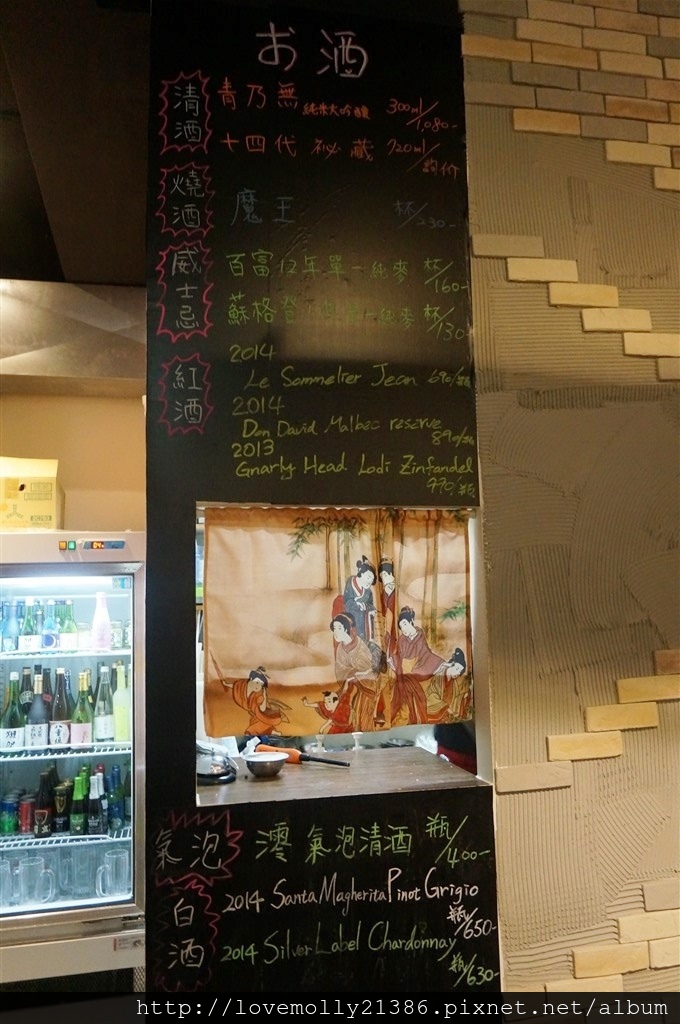 お酒
清酒
青乃無 純米大吟釀 300ml/1,080-
十四代 祕藏 720ml/詢价
燒酒
魔王 杯/230-
威士忌
百富12年單一純麥 杯/160-
蘇格登 單一純麥 杯/130
紅酒
2014
Le Sommelier Jean 690/瓶
2014
Don David Malbec reserve
890/瓶
2013
Gnarly Head Lodi Zinfandel
770/瓶
氣泡
澪 氣泡清酒 瓶/400-
白酒
2014 Santa Magherita Pinot Grigio
瓶/650-
2014 Silver Label Chardonnay
瓶/630-
http://lovemolly21386.pixnet.net/album